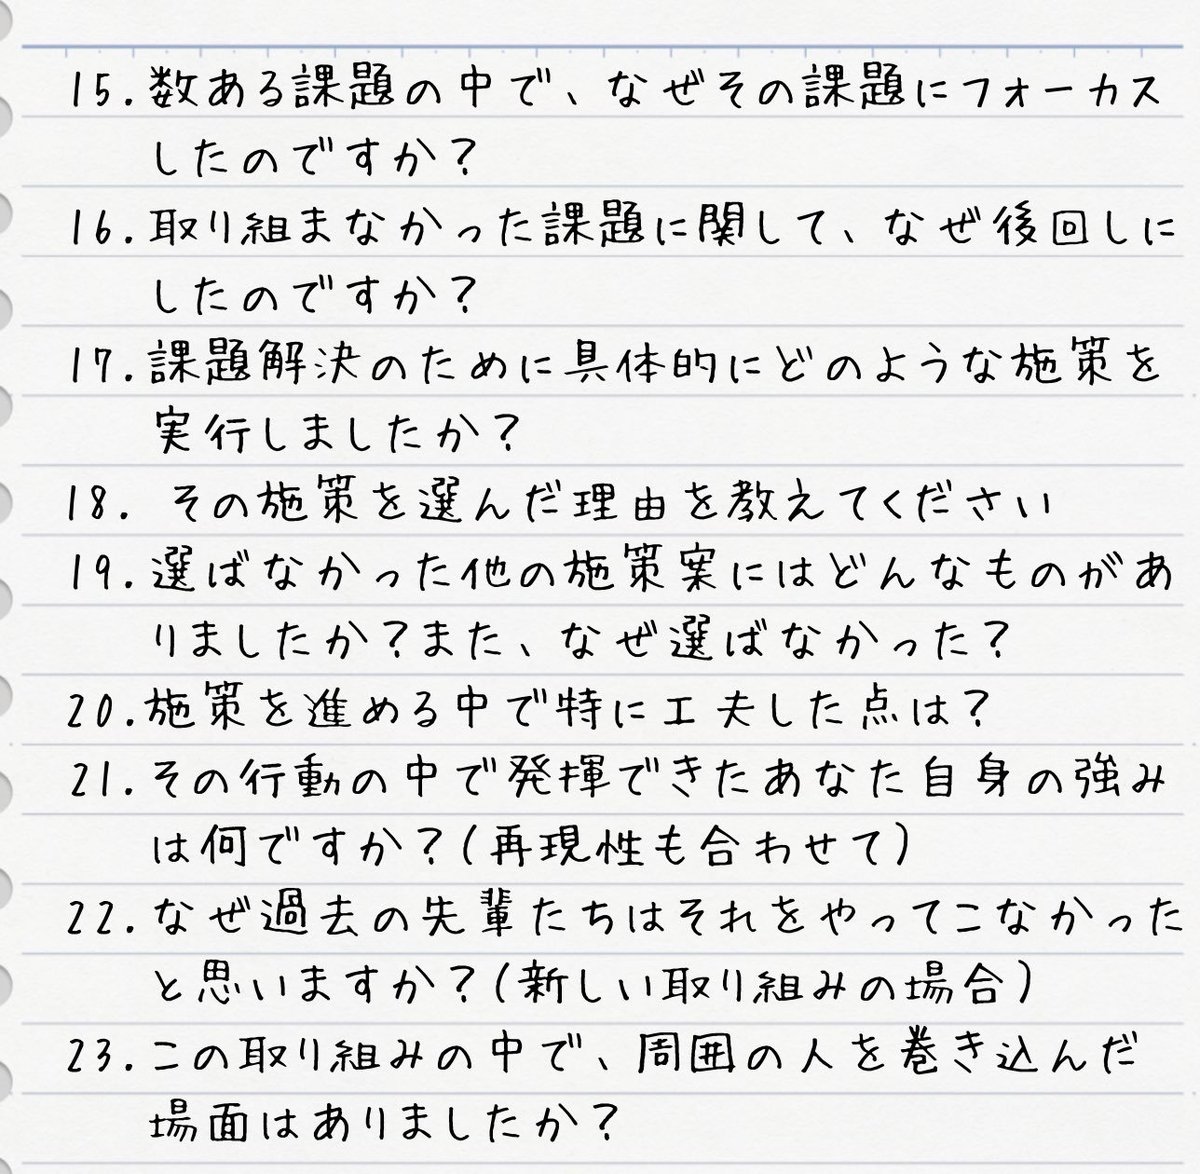 15.数ある課題の中で、なぜその課題にフォーカス
したのですか?
16.取り組まなかった課題に関して、なぜ後回しに
したのですか?
17.課題解決のために具体的にどのような施策を
実行しましたか?
18. その施策を選んだ理由を教えてください
19.選ばなかった他の施策案にはどんなものがあ
りましたか?また、なぜ選ばなかった?
20.施策を進める中で特に工夫した点は?
21.その行動の中で発揮できたあなた自身の強み
は何ですか?(再現性も合わせて)
22.なぜ過去の先輩たちはそれをやってこなかった
と思いますか?(新しい取り組みの場合)
23.この取り組みの中で、周囲の人を巻き込んだ
場面はありましたか?